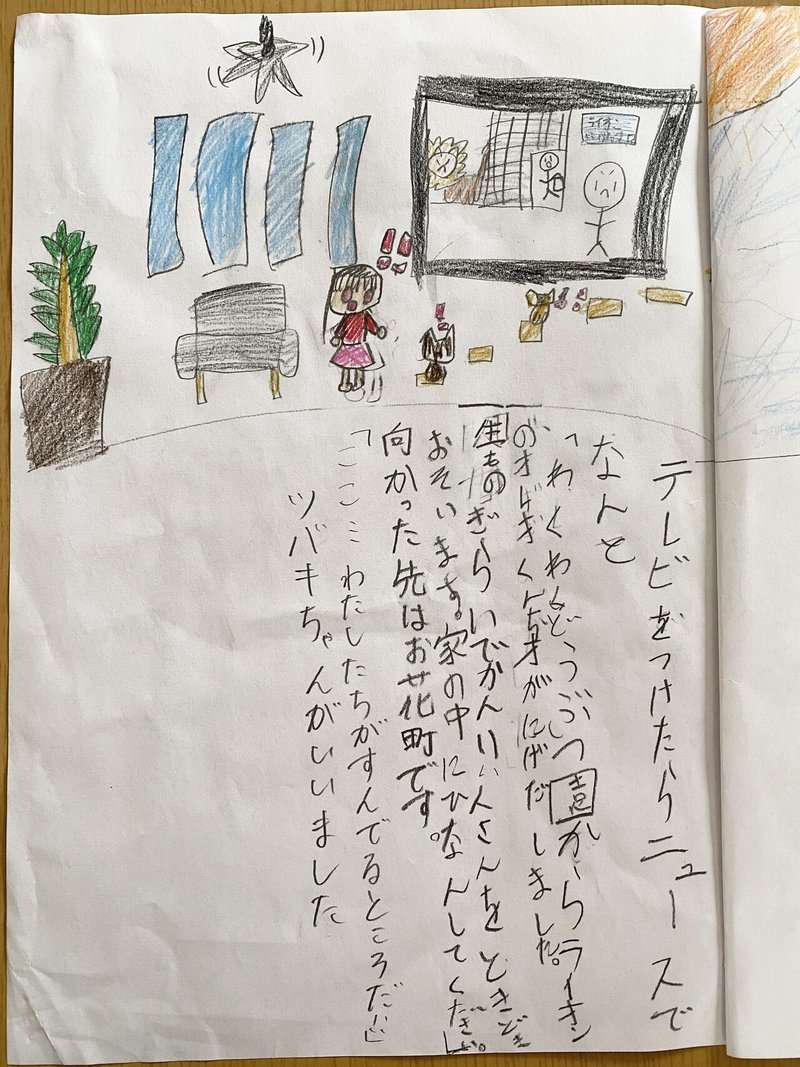 ライオン
テレビをつけたらニュースで
なんと
「わくわくどうぶつ園からライオン
がにげだしました。
生ものぎらいでかんり人さんをときどき
おそいます。家の中にひなんしてください。
向かった先はお花町です。
「ここ…わたしたちがすんでるところだ!!」
ツバキちゃんがいいました